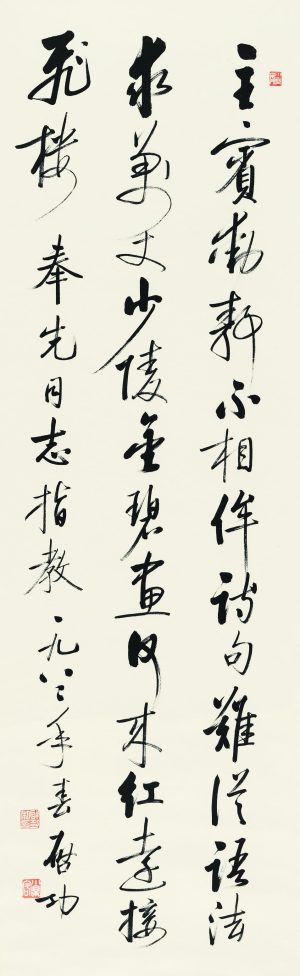 主賓動不相侔詩句難從語法
求萬丈少陵金碧畫何来紅遠接
飛樓 奉先同志指教 一九八二年春 启功